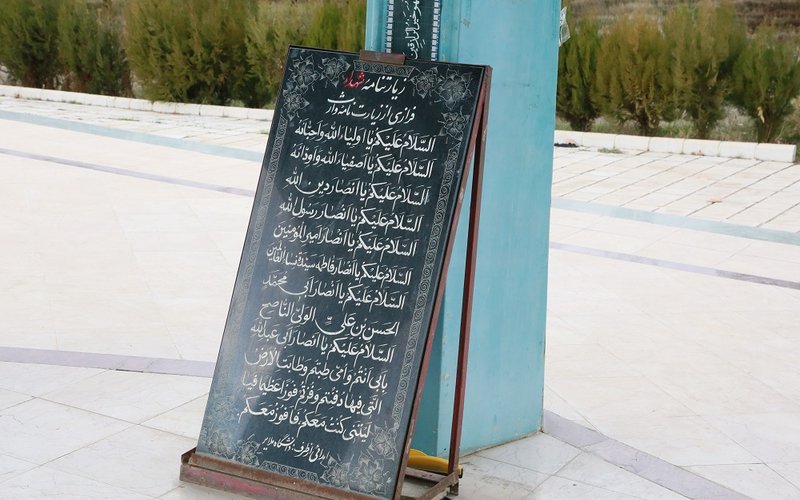 زیارتنامه شهداء
فرازی از زیارت نامه وارث
اَلسَّلامُ عَلَیکُم یا اَولیاءَ اللهِ وَ اَحِبّائَهُ
اَلسَّلامُ عَلَیکُم یا اَصفیاءَ اللهِ وَ اَوِدّائَهُ
اَلسَّلامُ عَلَیکُم یا اَنصارَ دینِ اللهِ
اَلسَّلامُ عَلَیکُم یا اَنصارَ رَسولِ اللهِ
اَلسَّلامُ عَلَیکُم یا اَنصارَ اَمیرِ المُؤمِنین
اَلسَّلامُ عَلَیکُم یا اَنصارَ فاطِمَه سَیِّدَةِ نِساءِ العالَمین
اَلسَّلامُ عَلَیکُم یا اَنصارَ اَبی مُحَمَّد
الحَسَنِ بنِ عَلیٍّ الوَلیِّ النّاصِح
اَلسَّلامُ عَلَیکُم یا اَنصارَ اَبی عَبدِالله
بِاَبی اَنتُم وَ اُمّی طِبتُم وَ طابَتِ الاَرضُ
الَّتی فیها دُفِنتُم وَ فُزتُم فَوزاً عَظیماً فَیا
لَیتَنی کُنتُ مَعَکُم فَاَفوزَ مَعَکُم
اهدائی از طرف: دانشگاه ملایر